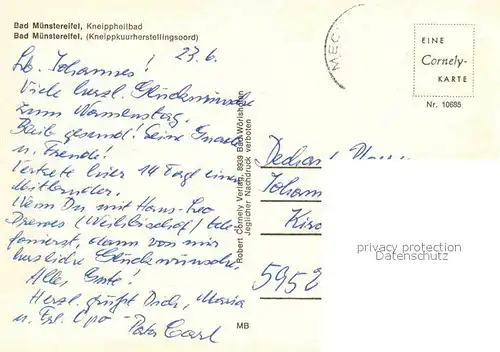 Bad Münstereifel, Kneippheilbad
Bad Münstereifel, (Kneippkuurherstellingsoord)
23.6.
Lb. Johannes!
Viele herzl. Glückwünsche
zum Namenstag.
Bleib gesund! Seine Gnade
u. Freude!
Vertrete hier 14 Tage einen
Mitbruder.
Wenn Du mit Hans-Leo
Drewes (Weihbischof) tele-
fonierst, dann von mir
herzliche Glückwünsche.
Alles Gute!
Herzl. grüßt Dich, Maria
u. Frl.
Pater Carl
Robert Cornely Verlag, 8939 Bad Wörishofen
Jeglicher Nachdruck verboten
MB
MEC
EINE
Cornely-
KARTE
Nr. 10685
Dechant
Johann
Kirc
5952
privacy protection
oldthing.de